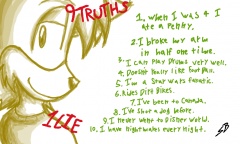 9 TRUTHS
1 LIE
1. when I was 4 I
ate a Penny.
2. I broke my arm
in half one time.
3. I can Play Drums very well.
4. Doesn't really like foot ball.
5. I'm a Star wars fanatic.
6. Rides Dirt Bikes.
7. I've been to Canada.
8. I've shot a dog before.
9. I never went to Disney World.
10. I have nightmares every night.
SB